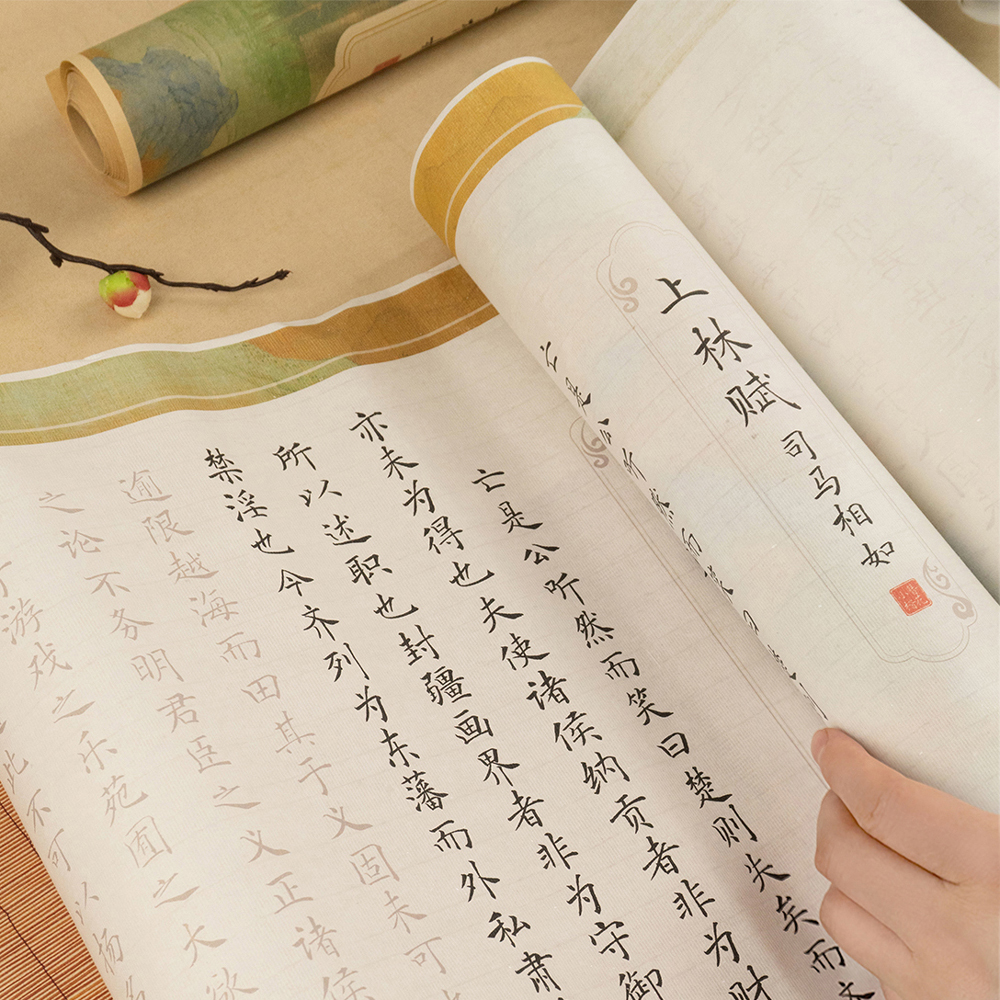 上林赋
司马相如
亡是公听然而
亡是公听然而笑曰楚则失矣而
亦未为得也夫使诸侯纳贡者非为财
所以述职也封疆画界者非为守御
禁淫也今齐列为东藩而外私肃
逾限越海而田其于义固未可
之论不务明君臣之义正诸侯
于游戏之乐苑囿之大欲
此不可以扬